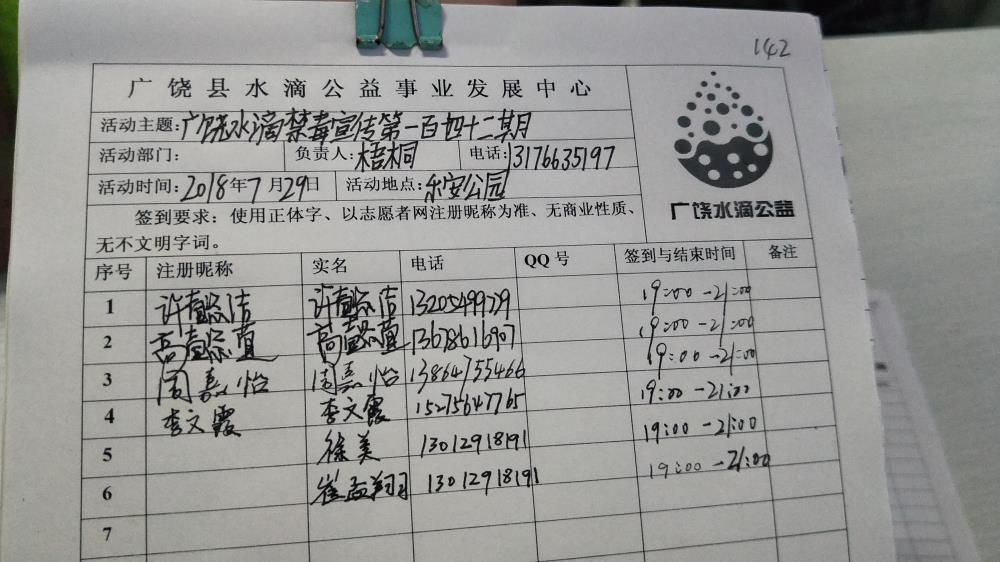 142
广饶县水滴公益事业发展中心
活动主题:广饶水滴禁毒宣传第一百四十二期
活动部门: 负责人:梧桐 电话:13176635197
活动时间:2018年7月29日 活动地点:乐安公园
广饶水滴公益
签到要求：使用正体字、以志愿者网注册昵称为准、无商业性质、
无不文明字词。
序号 注册昵称 实名 电话 QQ号 签到与结束时间 备注
1 19:00-21:00
2 13678616907 19:00-21:00
3 周嘉怡 周嘉怡 13864755466 19:00-21:00
4 李文霞 李文霞 15275647765 19:00-21:00
5 徐美 13012918191 19:00-21:00
6 崔孟翔 13012918191 19:00-21:00
7